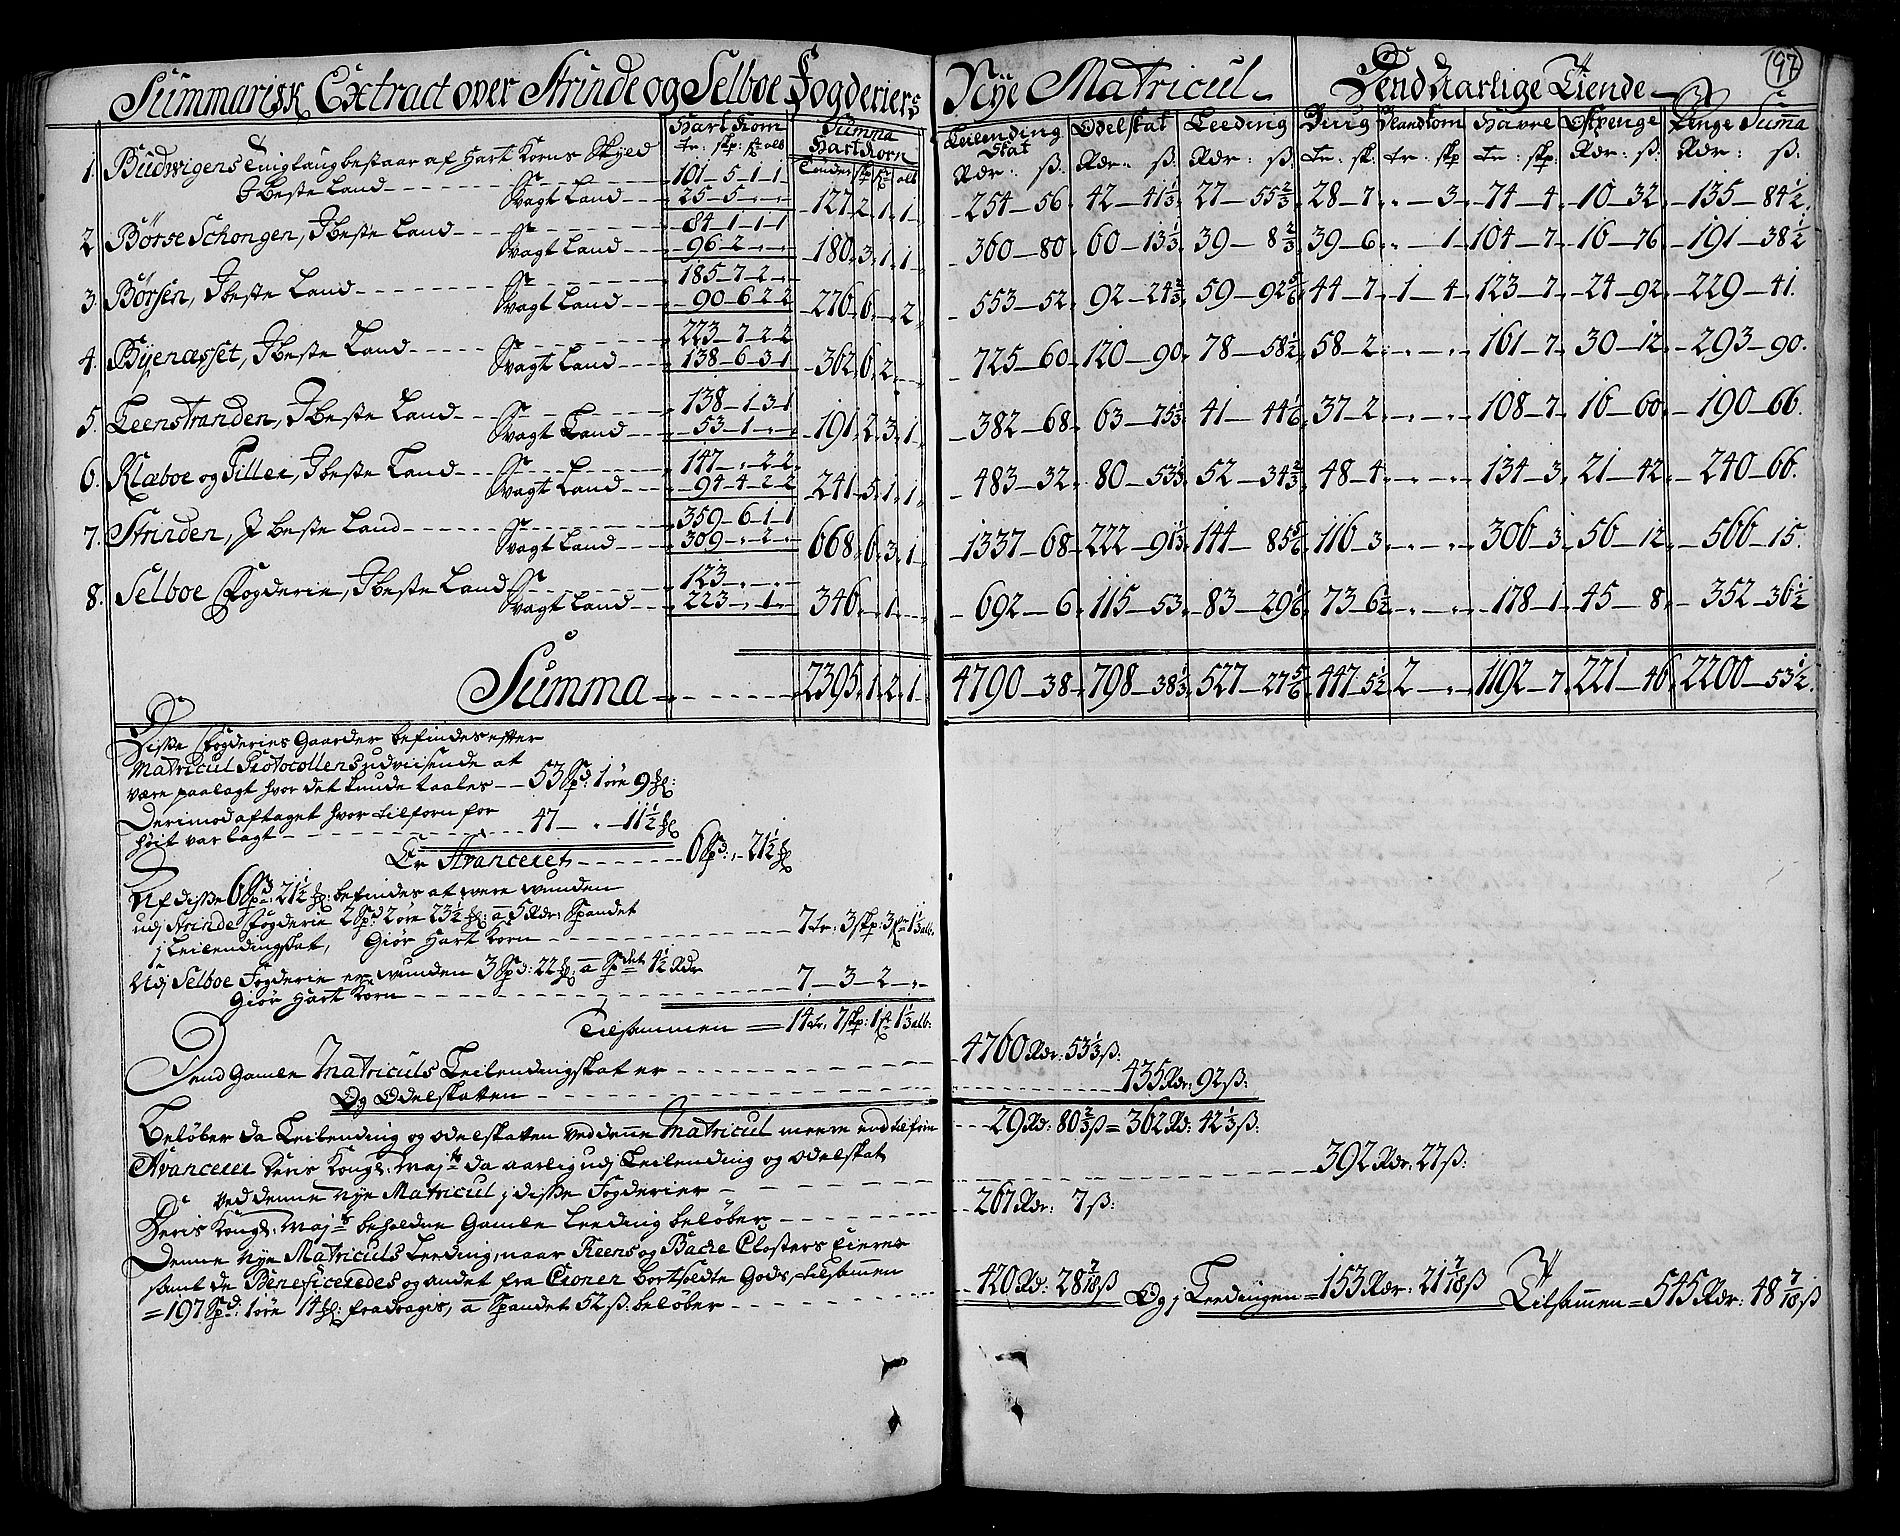 97
Summarisk Extract over Strinde og Selboe Fogderiers Nÿe Matricul
Dend Aarlige Tiende
Hart Korn Summa Hart Korn Leilending Skat Odelskat Leeding Biug Blandkorn Havre Ostpenge Penge Summa
Tr: skp: fr alb Tønder skp fr alb Rdr: ß: Rdr: ß. Rdr: ß Tr: sk. tr: skp Tr: skp: Rdr: ß: Rdr: ß.
1. Budwigens Tinglaug bestaar af Hart Korns Skyld
J beste Land 101-5-1-1
Svagt Land 25-5 127 2 1 1 254-56 42-41 1/3 27-55 2/3 28-7 3 74-4 10-32 135-84 1/2
2. Børse Schongen, J beste Land 84-1-1-1
Svagt Land 96-2 180 3 1 1 360-80 60-13 1/3 39-8 2/3 39-6 1 104-7 16-76 191-38 1/2
3. Børsen, J beste Land 185-7-2
Svagt Land 90-6-2-2 276 6 2 553-52 92-24 2/3 59-92 5/6 44-7 1-4 123-7 24-92 229-41.
4. Bÿenæsset, J beste Land 223-7-2-2
Svagt Land 138-6-3-1 362 6 2 725-60 120-90 78-58 1/2 58-2 161-7 30-12 293-90.
5. Leenstranden, J beste Land 138-1-3-1
Svagt Land 53-1 191 2 3 1 382-68 63-75 1/3 41-44 1/6 37-2 108-7 16-60 190-66.
6. Klæboe og Tiller, J beste Land 147-2-2
Svagt Land 94-4-2-2 241 5 1 1 483-32 80-53 1/3 52-34 2/3 48-4 134-3 21-42 240-66.
7. Strinden, J beste Land 359-6-1-1
Svagt Land 309-2 668 6 3 1 1337-68 222-91 1/3 144-85 5/6 116-3 306-3 56-12 566-15.
8. Selboe Fogderie, J beste Land 123
Svagt Land 223-1 346 1 692-6 115-53 83-29 1/6 73-6 1/2 178-1 45-8 352-36 1/2
Summa 2395 1 2 1 4790-38 798-38 1/3 527-27 5/6 447-5 1/2 2 1192-7 221-46 2200-53 1/2
Disse Fogderies Gaarder befindes efter
Matricul Protocollens udviisende at
være paalagt hvor det kunde taales 53 Spd: 1 øre 9
Derimod aftaget hvor tilforn for
høit var lagt 47 11 1/2
Er Avanceret 6 Spd: 21 1/2
Af disse 6 Spd: 21 1/2 befindes at være wunden
udj Strinde Fogderie 2 Spd 2 øre 23 1/2 a 5 Rdr: Spandet
j Leilendingskat, Giør Hart Korn 7 tr: 3 skp: 3 fr 1 1/3 alb.
Udj Selboe Fogderie er wunden 3 Spd: 22 a Spdet 4 1/2 Rdr
Giør Hart Korn 7-3-2
Tilsammen = 14 tr: 7 skp: 1 fr 1 1/3 alb:
Dend Gamle Matriculs Leilendingskat er 4760 Rdr: 53 1/3 ß:
Og Odelskatten 435 Rdr: 92 ß:
Beløber da Leilending og Odelskatten ved denne Matricul meere end tilforn 29 Rd: 80 2/3 ß = 362 Rd: 42 1/3 ß:
Avancerer Deris Kongl: Maj:ts da aarlig udj Leilending og Odelskat
ved denne nÿe Matricul j disse Fogderier 392 Rdr: 27 ß:
Deris Kongl: Maj:ts beholdne Gamle Leeding beløber 267 Rdr: 7 ß:
Denne nÿe Matriculs Leeding, naar Reens og Bache Closters Eieres
samt de Beneficeredes og andet fra Cronen bortsoldte Gods, tilsammen
= 197 Spd: 1 øre 14 fradragis, a Spandet 52 ß. beløber 420 Rd: 28 7/18 ß Og j Leedingen = 153 Rdr: 21 7/18 ß Tilsammen = 545 Rdr: 48 7/18 ß